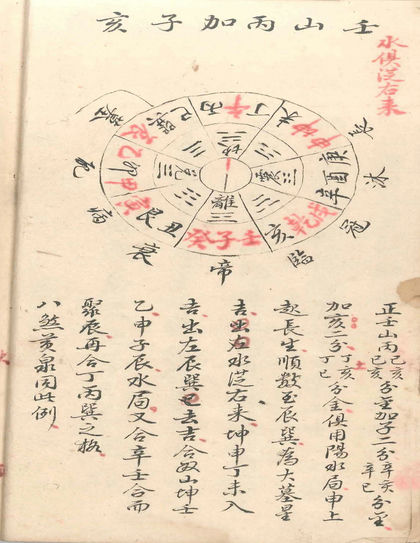 壬山丙加子亥
水俱從右来
生
沐
冠
臨
帝
衰
病
死
墓
巳丙午丁
庚酉辛
戌乾亥
壬子癸
丑艮寅
甲卯乙
震
離
正壬山丙己亥己巳分金加子二分辛亥辛巳分金
加亥二分丁亥丁巳分金俱用陽水局申上
起長生順数至辰巽為大墓星
吉出左水從右来坤申丁未入
吉出左辰巽巳去吉合奴山坤壬
乙申子辰水局又合辛壬合而
聚辰再合丁丙巽之格
八煞黄泉同此例